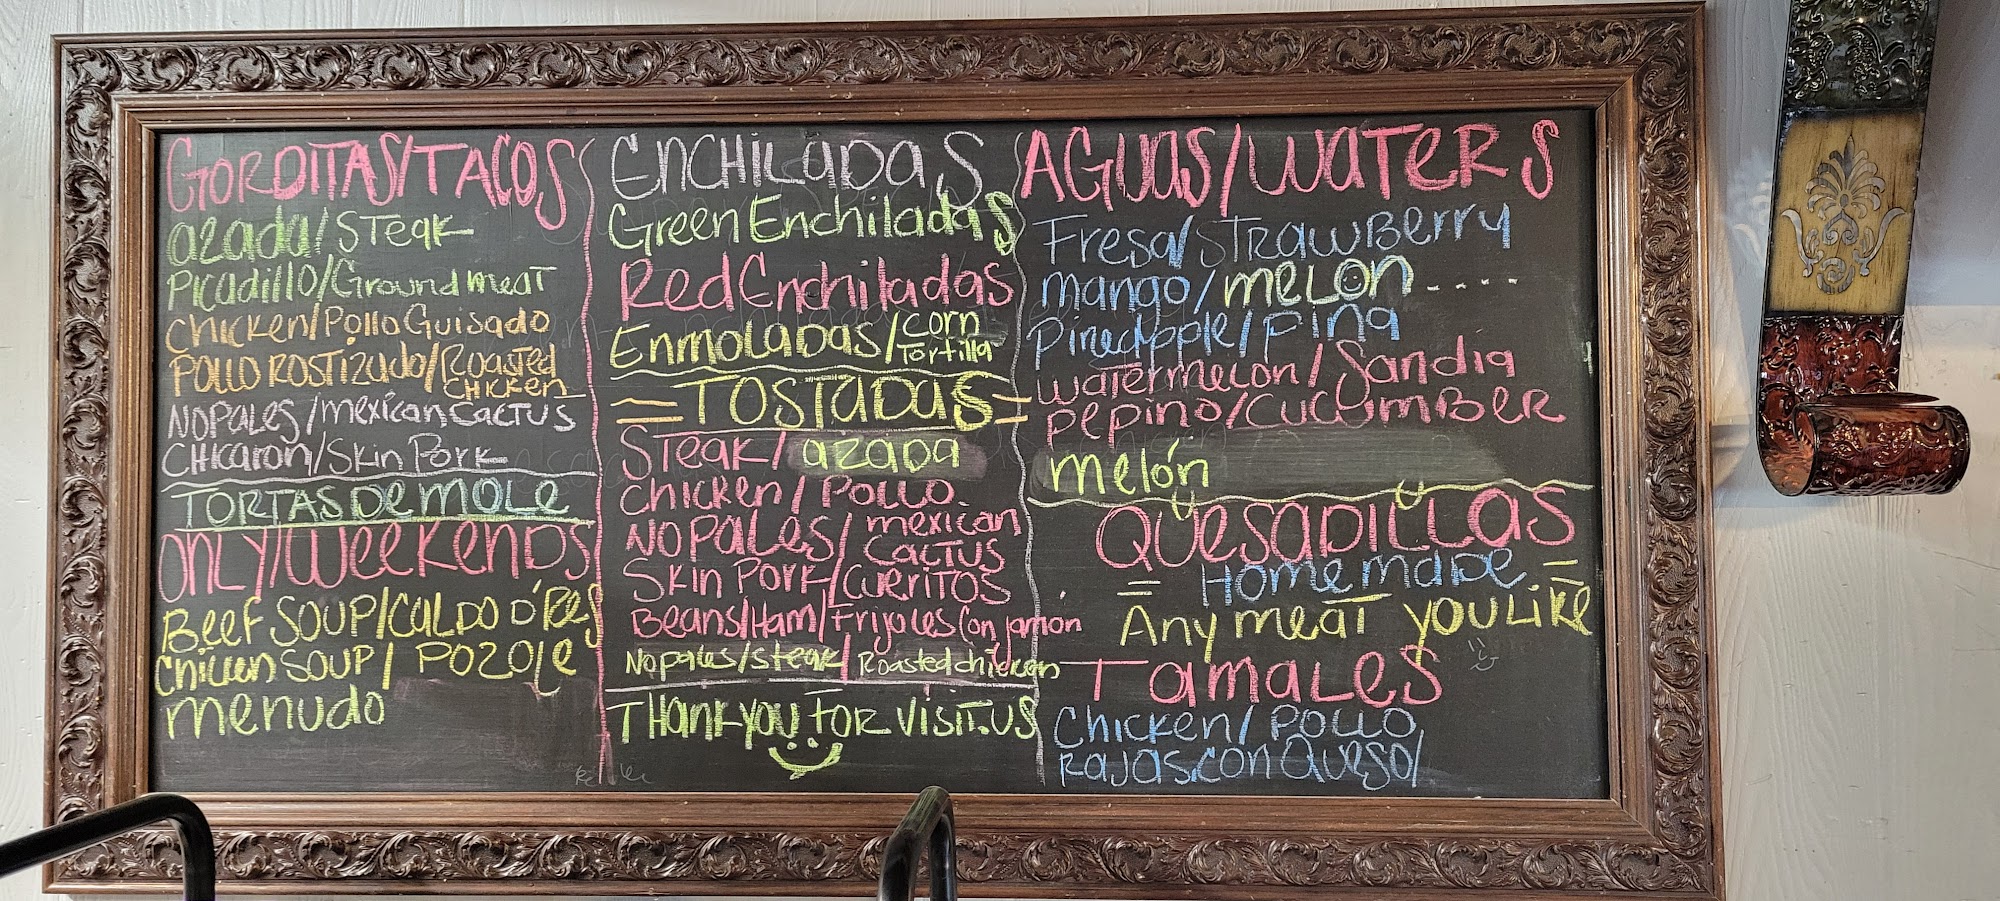 GORDITAS/TACOS
azada/STeak
Picadillo/Ground meaT
Chicken/Pollo Guisado
POLLO ROSTIZADO/Roasted
CHICKEN
NOPALES/mexican CacTUS
CHicaron/Skin Pork
TORTAS De MOLe
ONLY/Weekends
Beef SOUP/CALDO D'Res
Chicken SOUP/ POZOLe
menudo
ENCHILaDAS
Green Enchiladas
Red Enchiladas
ENMOLADAS/corn
Tortilla
=TOSTADAS=
Steak/azada
Chicken/Pollo
NOPALeS/mexican
CacTUS
Skin Pork/Cueritos
Beans/Ham/Frijoles Con jamon
Nopales/steak/Roasted chicken
THank you FOR VisiT.US
AGUAS/WATERS
Fresa/STRAWBerry
mango/meLON.....
Pineapple/Piña
watermelon/Sandia
Pepino/CUCUMBER
melón
QUeSADILLAS
=Home made=
Any meaT you Like
TamaLeS
Chicken/Pollo
Rajas.con Queso/